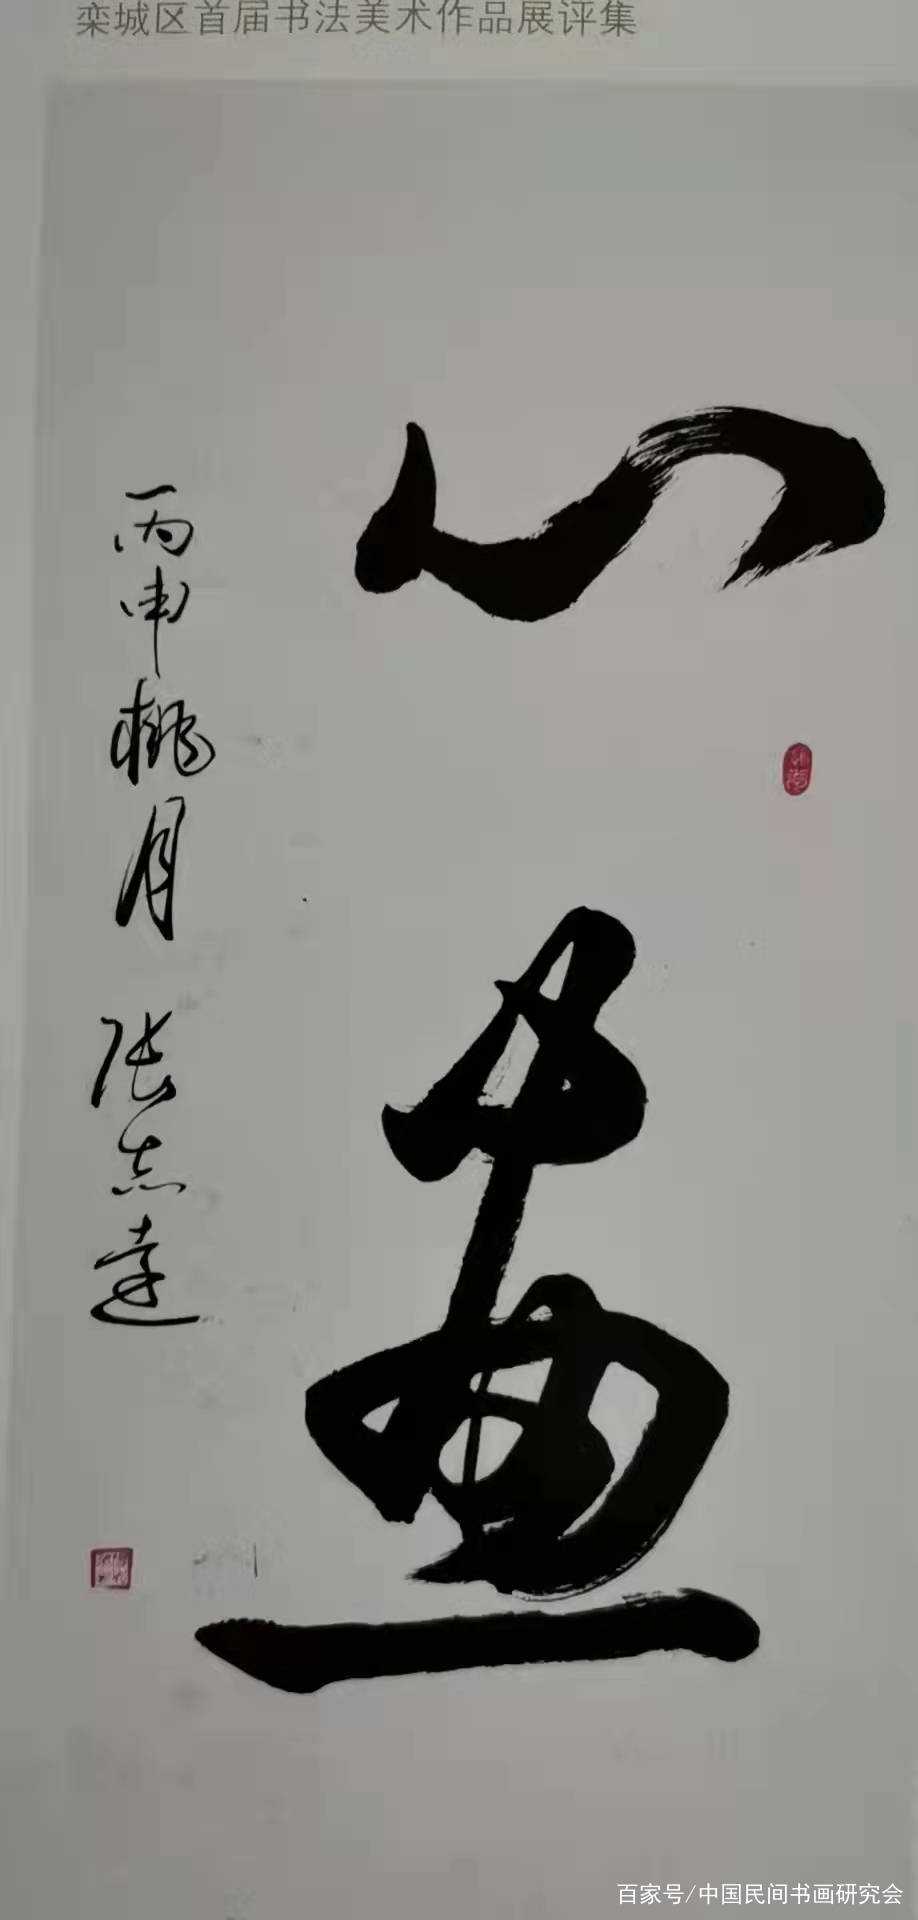 栾城区首届书法美术作品展评集
心畫
丙申桃月 张志達
百家号/中国民间书画研究会